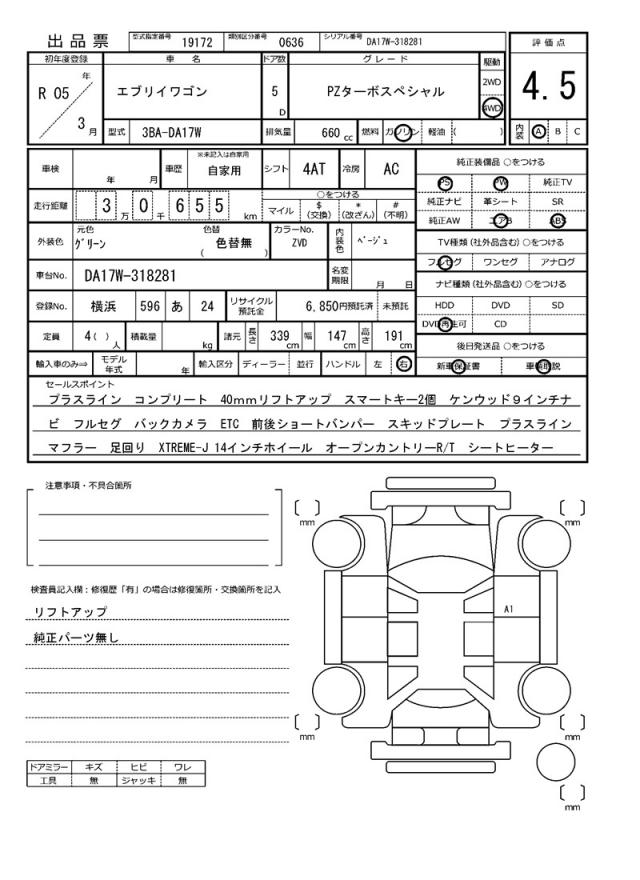 出品票 型式指定番号 19172 類別区分番号 0636 シリアル番号 DA17W-318281
評価点 4.5
内装 A B C
初年度登録 車名 ドア数 グレード 駆動
R 05 年 3 月 エブリイワゴン 5 D PZターボスペシャル 2WD 4WD
型式 3BA-DA17W 排気量 660 cc 燃料 ガソリン 軽油 ( )
車検 年 月 車歴 ※未記入は自家用 自家用 シフト 4AT 冷房 AC
走行距離 3 万 0 千 6 5 5 km ○をつける マイル $ (交換) * (改ざん) # (不明)
外装色 元色 グリーン 色替 色替無 ( ) カラーNo. ZVD 内装色 ベージュ
車台No. DA17W-318281 名変期限 月 日
登録No. 横浜 596 あ 24 リサイクル預託金 6,850円預託済 未預託
定員 4 ( ) 人 積載量 kg 諸元 長さ 339 cm 幅 147 cm 高さ 191 cm
輸入車のみ⇒ モデル年式 年 輸入区分 ディーラー 並行 ハンドル 左 右
純正装備品 ○をつける
PS PW 純正TV
純正ナビ 革シート SR
純正AW エアB ABS
TV種類 (社外品含む) ○をつける
フルセグ ワンセグ アナログ
ナビ種類 (社外品含む) ○をつける
HDD DVD SD
DVD再生可 CD
後日発送品 ○をつける
新車保証書 車輌取説
セールスポイント
プラスライン コンプリート 40mmリフトアップ スマートキー2個 ケンウッド９インチナ
ビ フルセグ バックカメラ ETC 前後ショートバンパー スキッドプレート プラスライン
マフラー 足回り XTREME-J 14インチホイール オープンカントリーR/T シートヒーター
注意事項・不具合箇所
検査員記入欄：修復歴「有」の場合は修復箇所・交換箇所を記入
リフトアップ
純正パーツ無し
ドアミラー キズ ヒビ ワレ
工具 無 ジャッキ 無
mm
mm
A1
mm
mm
mm